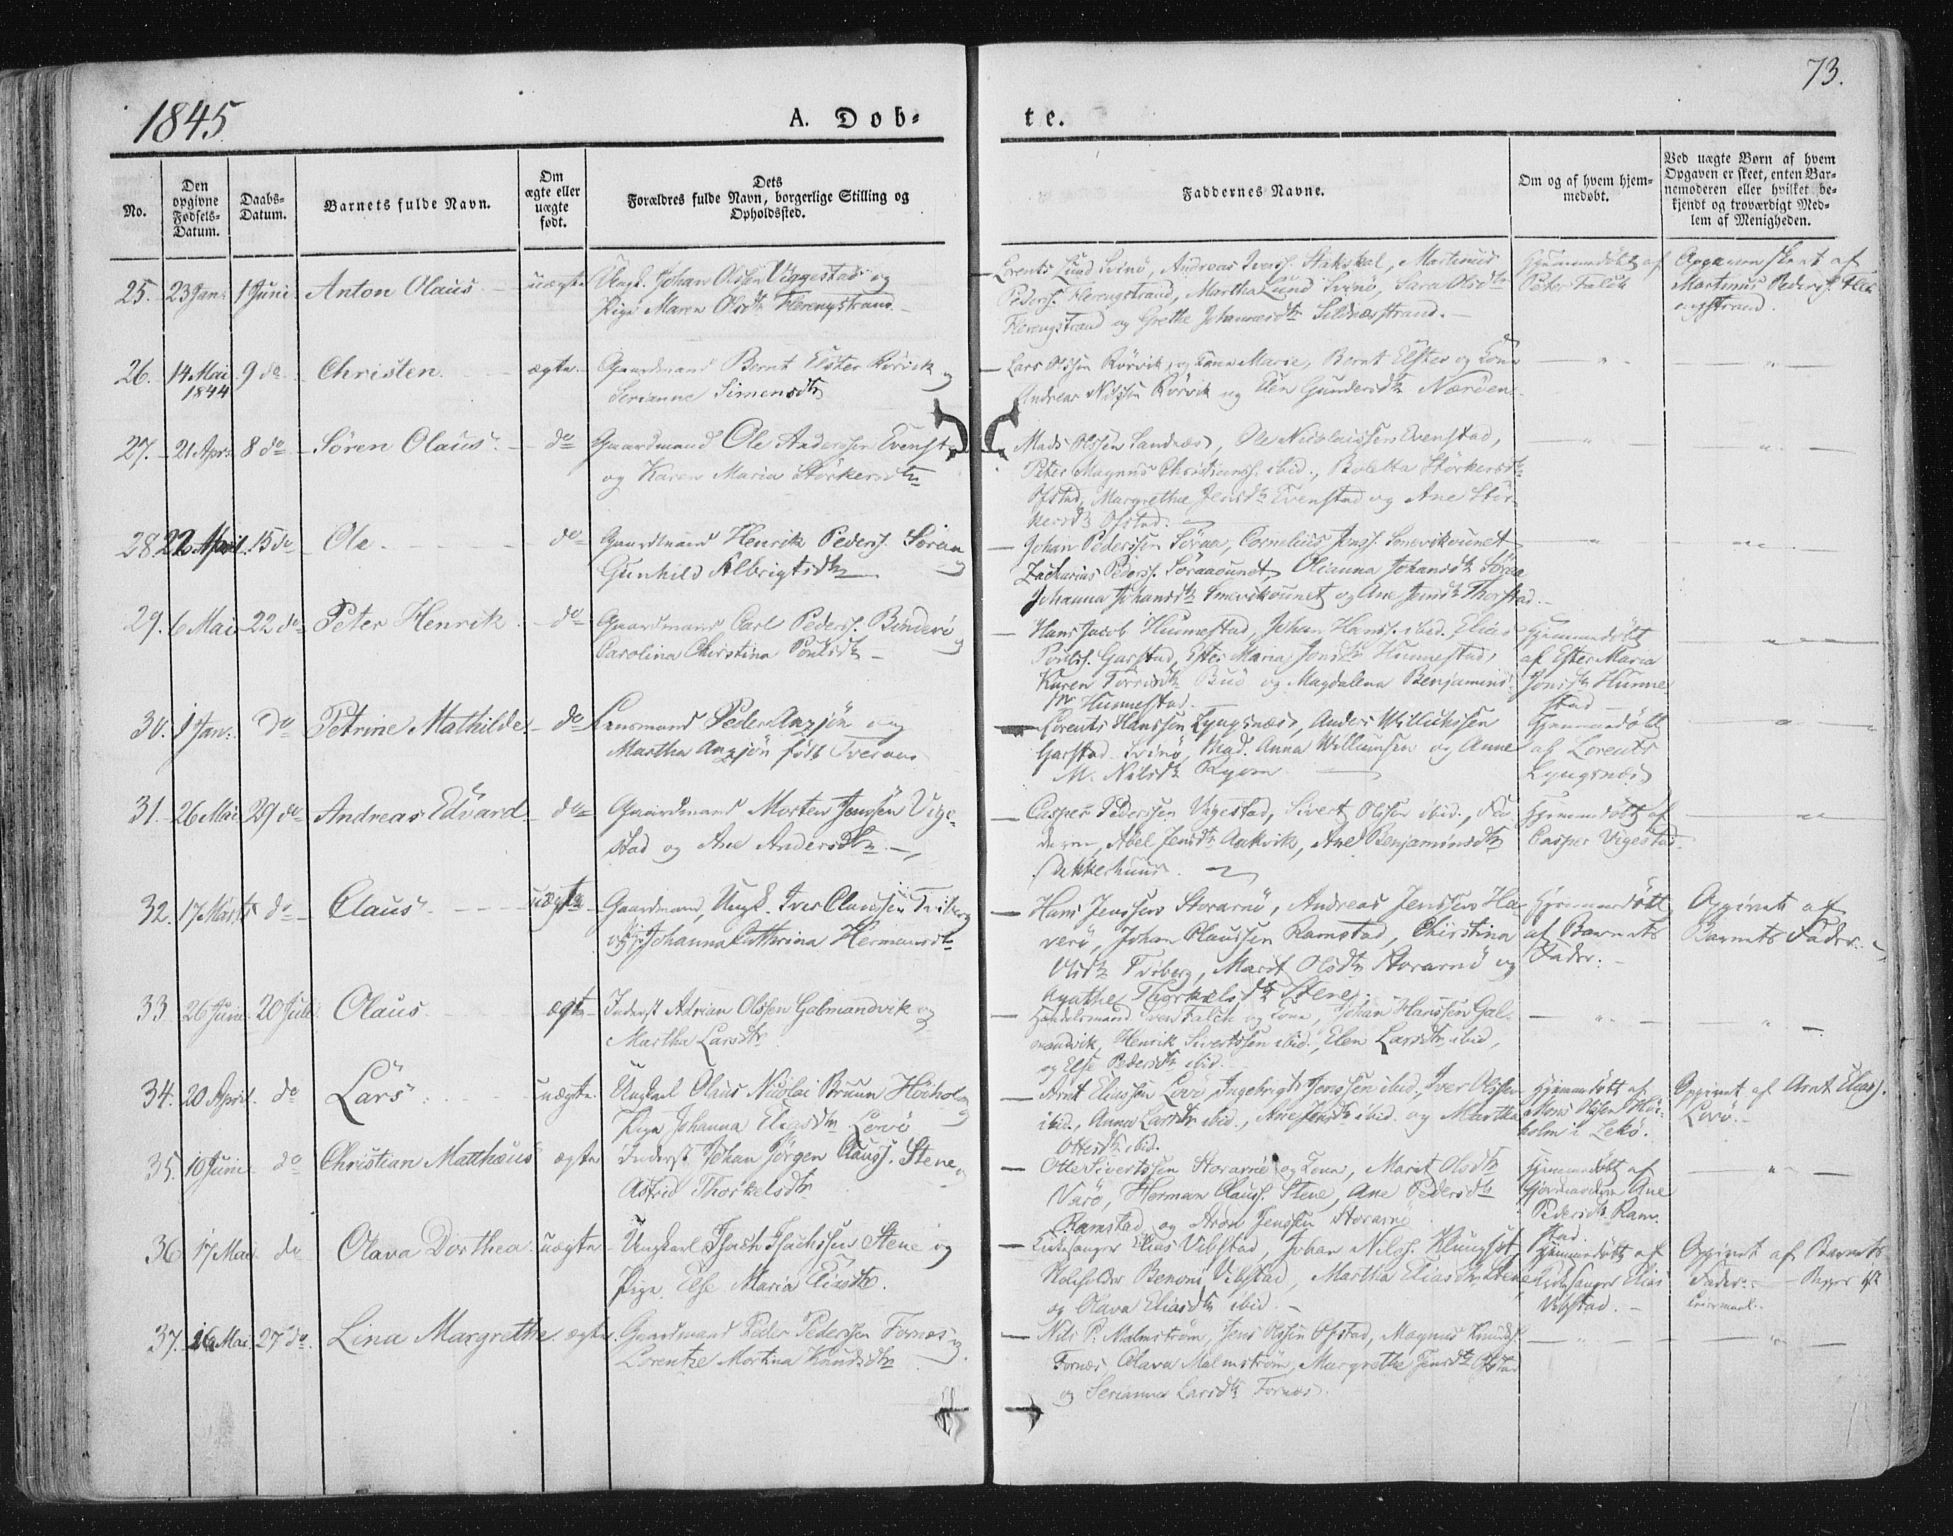 1845
A. Dob-
te.
73.
No.
Den opgivne Fødsels-Datum.
Daabs-Datum.
Barnets fulde Navn.
Om ægte eller uægte født.
Dets Forældres fulde Navn, borgerlige Stilling og Opholdssted.
Faddernes Navne.
Om og af hvem hjemmedøbt.
Ved uægte Børn af hvem Opgaven er skeet, enten Barnemoderen eller hvilket bekjendt og troværdigt Medlem af Menigheden.
25. 23 Jan. 1 Juni Anton Olaus uægte Ungk. Johan Olssen Viggestad og
Pige Maren Olsdtr Flerengstrand
Lorents Lund Svinø, Andreas Iverss. Martinus
Pederss. Flerengstrand, Martha Lund Svinø, Sara Olsdtr
Flerengstrand og Grethe Johannesdtr
Hjemmedøbt af
Peter Falch
Opgaven skeet af
Martinus Pederss. Fler
engstrand.
26. 14 Mai 1844 9 do Christen ægte Gaardmand Bernt Elster Rörvik og
Serianne Simonsdtr
Lars Olssen Rörvik og Kone Marie, Bernt Elster og Kone
Andreas Nilssen Rörvik og Elen Gundersdtr Nærøen
27. 21 Apr. 8 do Sören Olaus do Gaardmand Ole Anderssen Evenst.
og Karen Maria Störkersdtr
Mads Olssen Sandnæs, Ole Nicolaissen Evenstad,
Peter Magnus Christianss. ibid., Boletta Störkersdtr
Ofstad, Margrethe Jensdtr Evenstad og Ane Stör-
kersdtr Ofstad.
28 22 April 15 do Ole do Gaardmand Henrik Pederss. Söraa og
Gunhild Albrigtsdtr
Johan Pederssen Söraa, Cornelius Jenss.
Zacharias Pederss. Söraaounet, Olianna Johansdtr Söraa
Johanna Johansdtr og Ane Jensdtr Thorstad
29. 6 Mai 22 do Peter Henrik do Gaardmand Carl Pederss. Binderö og
Carolina Christina Poulsdtr
Hans Jacob Hunnestad, Johan Hanss. ibid. Elias
Poulss. Garstad, Ester Maria Jonsdtr Hunnestad,
Karen og Magdalena Benjamins
dtr Hunnestad.
Hjemmedöbt
af Ester Maria
Jonsdtr Hunne
stad
30. 1 Jan. do Petrine Mathilde do Lensmand Peder Anzjön og
Martha Anzjön født
Lorents Hanssen Lyngsnæs, Anders Willumsen
Garstad Svinö, Mad. Anna Willumsen og Anne
M. Nilsdtr Ryom
Hjemmedöbt
af Lorents
Lyngsnæs
31. 26 Mai 29 do Andreas Edvard do Gaardmand Morten Jenssen Vige-
stad og Ane Andersdtr
Casper Pederssen Vigestad, Sivert Olssen ibid., Fa-
deren, Abel Jensdtr Aakvik, Ane Benjaminsdtr
Hjemmedöbt af
Casper Vigestad.
32. 17 Marts do Claus uægte Gaardmand, Ungk. Iver Claussen Triberg
og Pige Johanna Cathrina Hermansdtr
Hans Jenssen Storarnö, Andreas Jenssen Ha-
verö, Johan Claussen Ramstad, Christina
Olsdtr Triberg, Marit Olsdtr Storarnö og
Agathe Thorkelsdtr Stene.
Hjemmedöbt
af Barnets
Fader.
Opgivet af
Barnets Fader.
33 26 Juni 20 Juli Olaus ægte Inderst Adrian Olssen Galmandvik og
Martha Larsdtr
Handelsmand Iver Falch og Kone, Johan Hanssen Gal-
mandvik, Henrik Sivertssen ibid., Elen Larsdtr ibid,
og Else Pedersdtr ibid.
34. 20 April do Lars uægte Ungkarl Olaus Nicolai Bruun Höiholm og
Pige Johanna Eliasdtr Lovö
Arnt Eliassen Lovö, Ingebrigt Jenssen ibid., Iver Olssen
ibid., Anna Larsdtr ibid., Ane Jensdtr ibid. og Martha
Ottesdtr ibid.
Hjemmedöbt af
Mons Olssen Höi-
holm i Lekö.
Opgivet af Arnt Eliass.
Lovö.
35. 10 Juni do Christian Matthæus ægte Inderst Johan Jörgen Clauss. Stene og
Astrid Thorkelsdtr
Otte Sivertssen Storarnö og Kone, Marit Olsdtr
Varö, Herman Clauss. Stene, Ane Pedersdtr
Ramstad og Aron Jenssen Storarnö
Hjemmedöbt af
Gjordmoderen Ane
Pedersdtr Ram-
stad
36 17 Mai do Olava Dorthea uægte Ungkarl Isach Isachssen Stene og
Pige Else Maria Eliasdtr.
Kirkesanger Elias Vibstad, Johan Nilss.
Benoni Vibstad, Martha Eliasdtr Stene
og Olava Eliasdtr ibid.
Hjemmedöbt af
Kirkesanger Elias
Vibstad.
Opgivet af Barnets
Fader.
37. 16 Mai 27 do Lina Margrethe ægte Gaardmand Peder Pederssen Fornes og
Lorentze Martina Knudsdtr
Nils P. Malmström, Jens Olssen Ofstad, Magnus Knudss.
Fornes, Olava Malmström, Margrethe Jensdtr Ofstad
og Serianna Larsdtr Fornes.